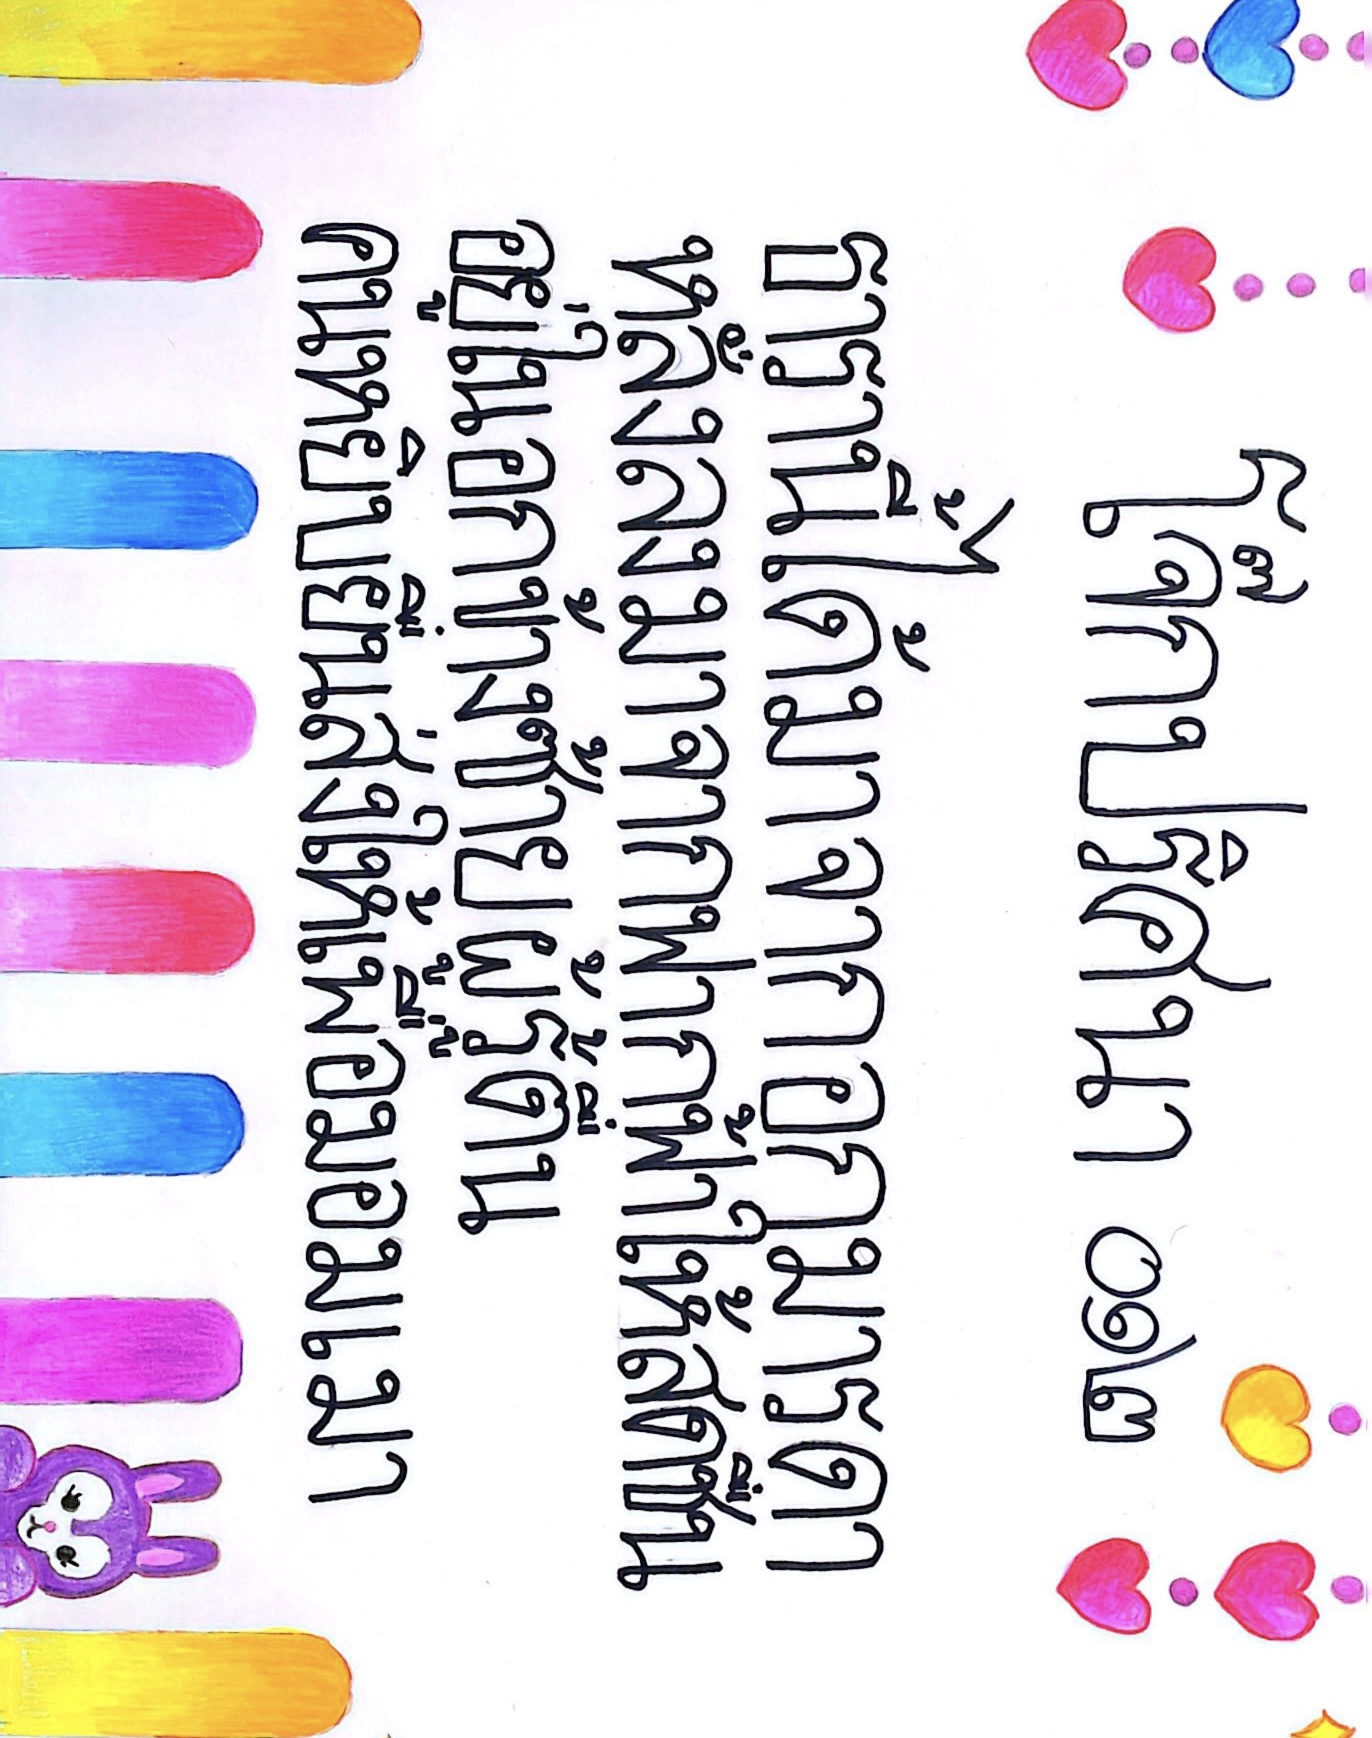 โจ๊กปริศนา ๐๑๒
ธารานี้ได้มาจากอกมารดา
หลั่งลงมาจากฟากฟ้าให้สดชื่น
อยู่ในอกข้างซ้ายผู้รู้ตื่น
คนหยิบยื่นส่งให้เพื่อมอมเมา